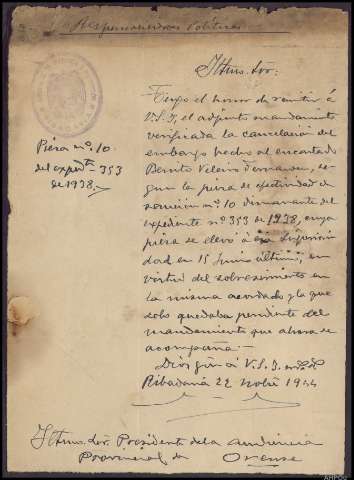 Responsabilidades Políticas
Iltmo. Sor:
Tengo el honor de remitir á
V.S.I. el adjunto mandamiento
verificada la cancelación del
embargo hecho al encartado
Benito Veleiro Fernandez, se-
gun la pieza de efectividad de
sanción nº 10 dimanante del
expediente nº 353 de 1938, cuya
pieza se elevó á esa Superiori-
dad en 15 Junio último, en
virtud del sobreseimiento en
la misma acordado y la que
solo quedaba pendiente del
mandamiento que ahora se
acompaña.-
Pieza nº. 10
del expedte- 353
de 1938,-
Dios gue á V.S.I.
Ribadavia 22 Nobre 1944
Iltmo. Sor. Presidente de la Audiencia
Provincial de Orense